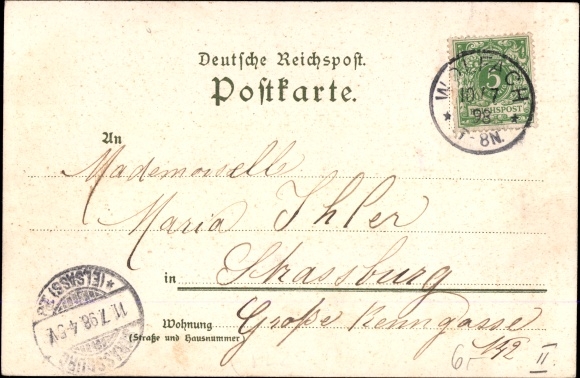 Deutsche Reichspost.
Postkarte.
WOLFACH
10/7
98
7-8N.
5
REICHSPOST
An
Mademoiselle
Maria Ihler
in Strassburg
Wohnung Große Renngasse
(Straße und Hausnummer)
6.- 192 II
(ELSASS)
11.7.98.4-5N.